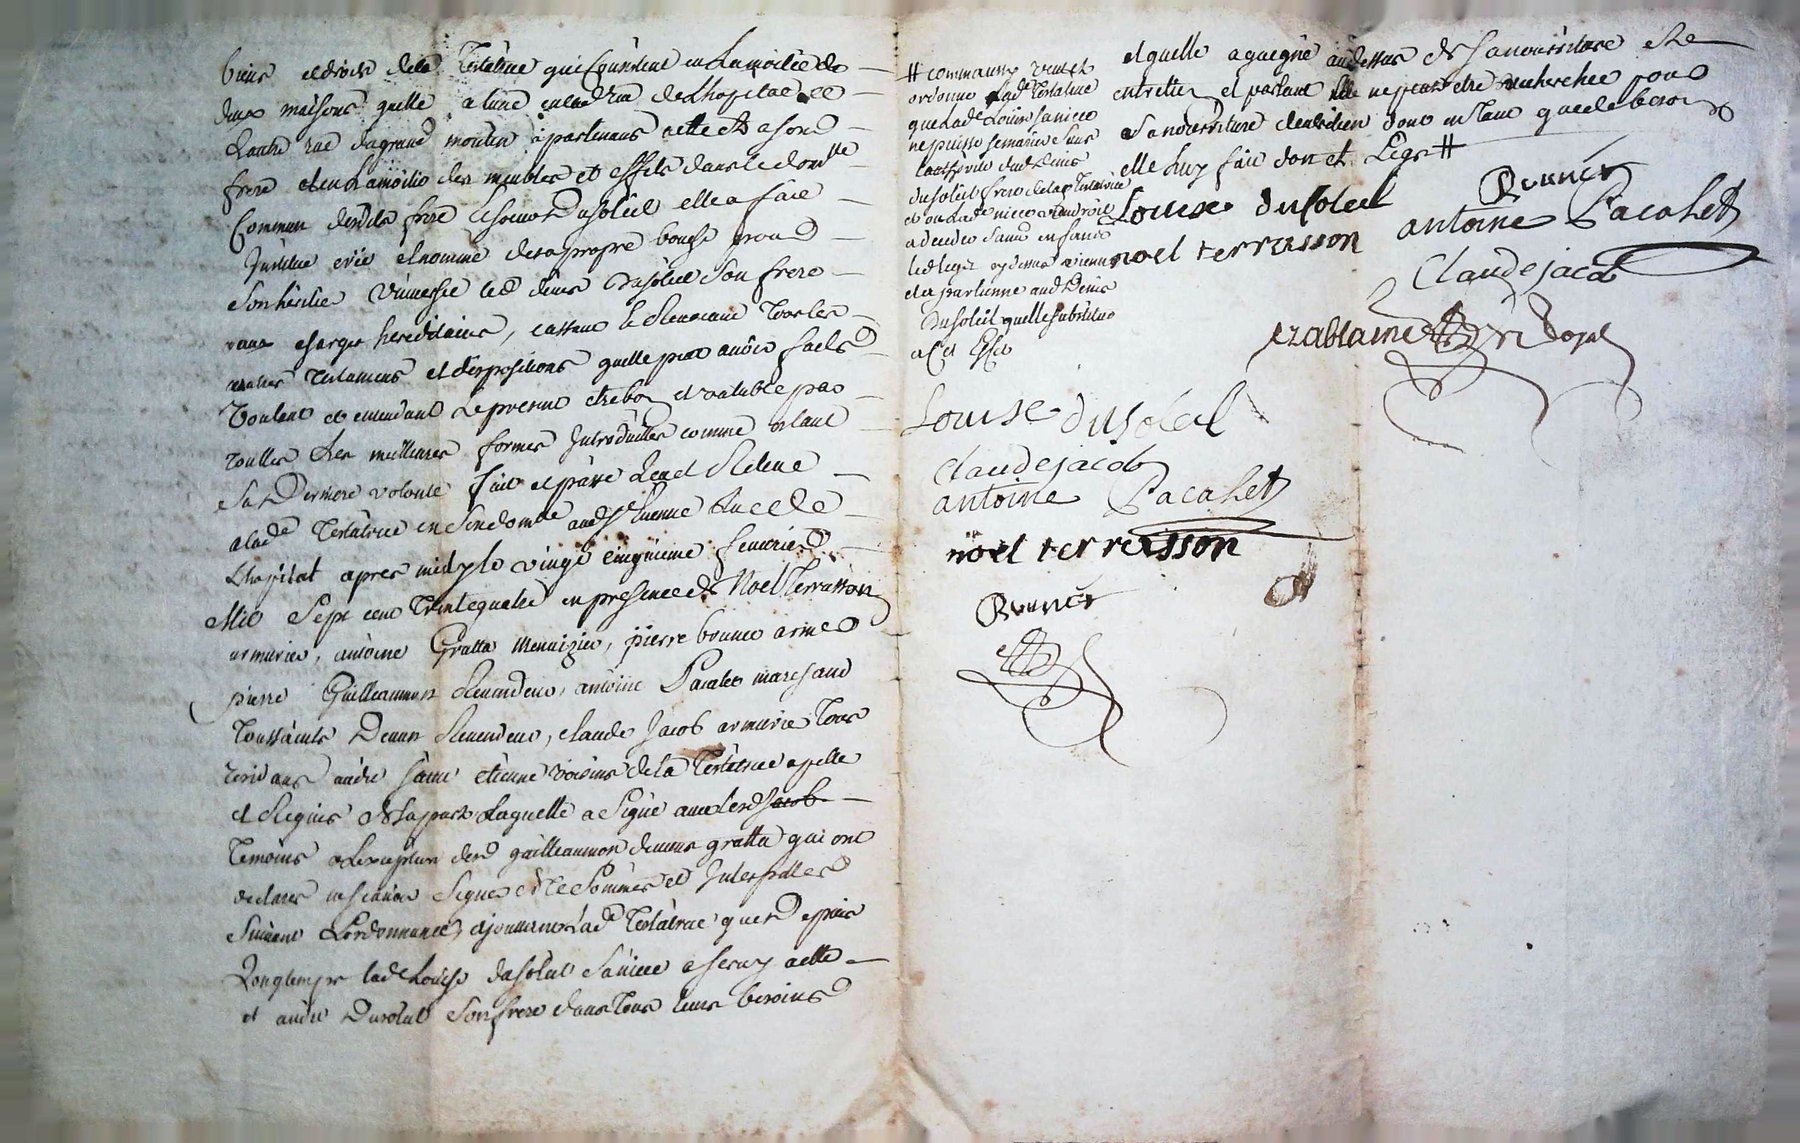 biens et droits de la Testatrice qui consistent en la moitié de
deux maisons quelle a lune en lad rue de Lhopital et
Lautre rue du grand moulin apartenans a elle et a son d
frere et en la moitié des meubles et effets dans le domlle
Commun dend de frere et soeur Dusoleil elle a fait
Institue crée et nommé de sa propre bouche pour
son heritier universel led denis Dusoleil son frere
aux charges hereditaires, cassant et Revocant tous les
autres Testamens et dispositions quelle peut avoir faits
voulant et entendant le present etre bon et valable par
toutes les meilleures formes Introduittes comme etant
sa Derniere volonté fait et passé Leu et Releue
a lade Testatrice en son domlle aud St Etienne Rue de
Lhopital apres midy le vingt cinquieme feurier
Mil Sept cent Trente quatre en presence de Noel Terrasson
armurier, antoine Gratta Menuizier, pierre bonnet armer
pierre Guilleaumon Reuendeur, antoine Pacalet marchand
Toussaints Deuun Reuendeur, claude Jacob armurier Tous
residans audit saint etienne voisins de la Testatrice apellés
et Requis de sa part Laquelle a Signé auec lesd Jacob
Temoins a Lexception desd guilleaumon deuun gratta qui ont
declarés ne scavoir Signer de ce Sommés et Interpellés
Suiuant Lordonnance, ajoutant lad Testatrice que depuis
Longtemps lade Louise dusoleil sa niece a seruy a elle
et audit Dusoleil son frere dans tous leurs besoins
# commauns veut et
ordonne lade Testatrice
que lade Louise sa niece
ne puisse se marier sans
dud Denis
dusoleil frere de la Testatrice
et ou lade niece viendroit
a deceder sans enfans
led legs
et apartienne aud Denis
Dusoleil quelle substitue
a cet effet
et quelle a gaigné au dessus de sa nourriture et
entretien et partant elle ne peut etre recherchée pour
sa nourriture dentretien dont en tant que de besoin
elle luy fait don et Legs #
Louise dusoleil
Bonnet
noel terrasson
antoine Pacalet
Claude jacob
Louise dusoleil
Claude jacob
antoine Pacalet
noel terrasson
Bonnet